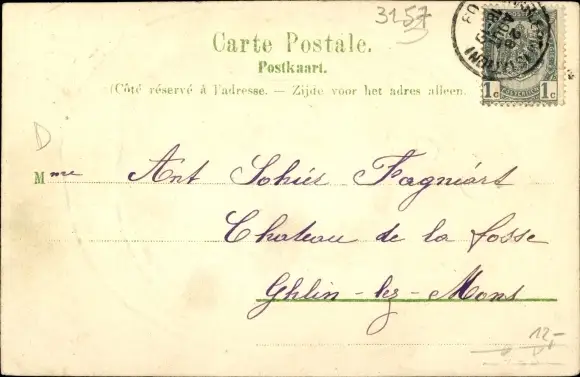 3157
Carte Postale.
Postkaart.
(Côté réservé à l'adresse. — Zijde voor het adres alleen.
D
Mme Ant Sohier Fagniart
Chateau de la fosse
Ghlin-lez-Mons
1c 1c
12,-